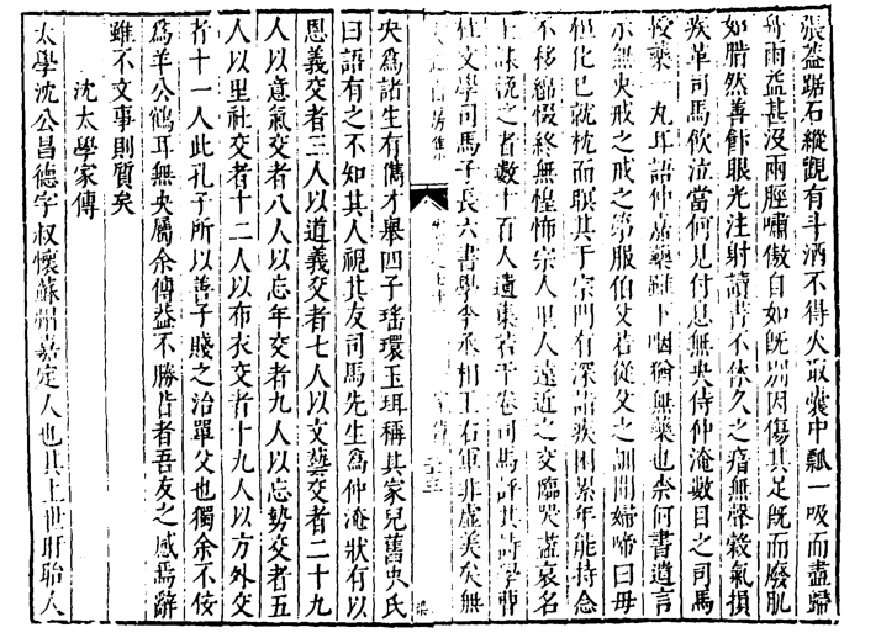 張蓋踞石縱觀有斗酒不得火取囊中瓢一吸而盡歸
舟雨益甚沒兩脛嘯傲自如旣別因傷其足旣而廢肌
如腊然善飾眼光注射讀書不休久之瘖無聲穀氣損
疾革司馬飲泣當何見付息無央侍仲淹數目之司馬
授藥一丸耳語仲淹藥雖下咽猶無藥也奈何書遺言
示無央戒之戒之第服伯父若從父之訓聞婦啼曰毋
怛化已就枕而瞑其于宗門有深詣疾困累年能持念
不移綿惙終無惶怖宗人里人遠近之交臨哭盡哀名
士誄挽之者數十百人遺集若干卷司馬評其詩學
杜文學司馬子長六書學李丞相王右軍非虛美矣無
央為諸生有儁才舉四子瑤環玉珥稱其家兒舊史氏
曰語有之不知其人視其友司馬先生為仲淹狀有以
恩義交者三人以道義交者七人以文藝交者二十九
人以意氣交者八人以忘年交者九人以忘勢交者五
人以里社交者十二人以布衣交者十九人以方外交
者十一人此孔子所以善子賤之治單父也獨余不佞
為羊公鶴耳無央屬余傳益不勝昔者吾友之感焉辭
雖不文事則質矣
沈太學家傳
太學沈公昌德字叔懷蘇州嘉定人也其上世盱眙人